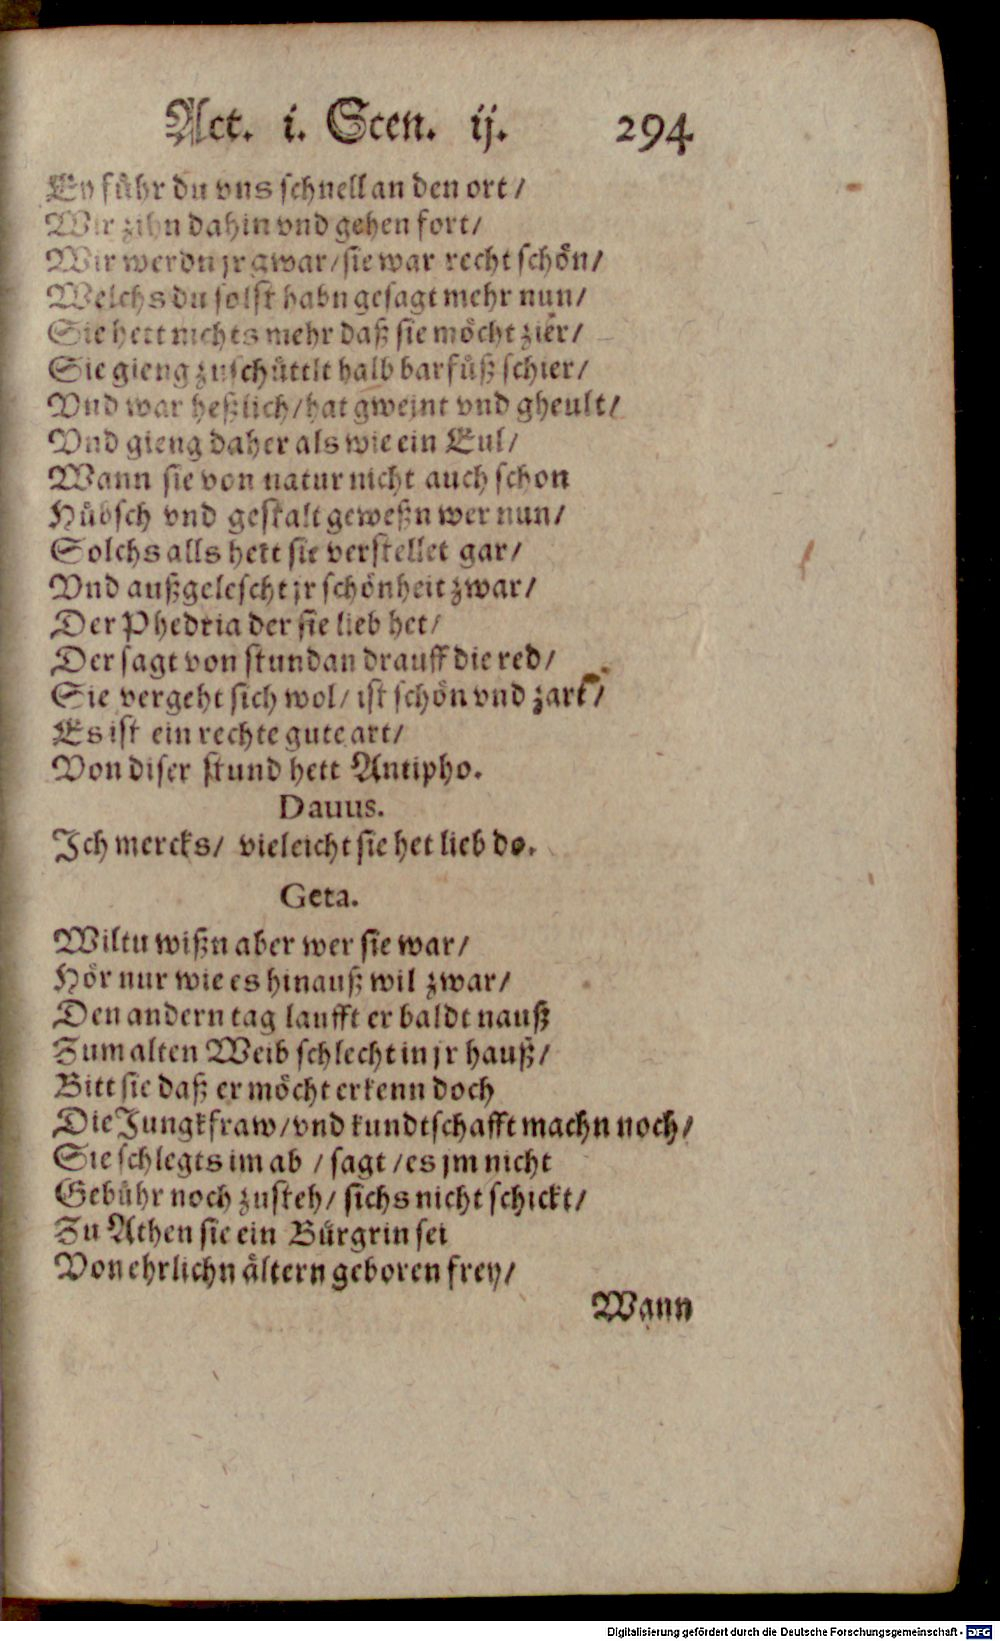 Act. i. Scen. ij. 294
Ey führ du vns schnell an den ort /
Wir zihn dahin vnd gehen fort /
Wir werdn jr gwar / sie war recht schön /
Welchs du solst habn gesagt mehr nun /
Sie hett nichts mehr daß sie möcht zier /
Sie gieng zuschüttlt halb barfüß schier /
Vnd war heßlich / hat gweint vnd gheult /
Vnd gieng daher als wie ein Eul /
Wann sie von natur nicht auch schon
Hübsch vnd gestalt geweßn wer nun /
Solchs alls hett sie verstellet gar /
Vnd außgelescht jr schönheit zwar /
Der Phedria der sie lieb het /
Der sagt von stund an drauff die red /
Sie vergeht sich wol / ist schön vnd zart /
Es ist ein rechte gute art /
Von diser stund hett Antipho.
Dauus.
Ich mercks / vieleicht sie het lieb do.
Geta.
Wiltu wißn aber wer sie war /
Hör nur wie es hinauß wil zwar /
Den andern tag laufft er baldt nauß
Zum alten Weib schlecht in jr hauß /
Bitt sie daß er möcht erkenn doch
Die Jungkfraw / vnd kundtschafft machn noch /
Sie schlegts im ab / sagt / es jm nicht
Gebühr noch zusteh / sichs nicht schickt /
Zu Athen sie ein Bürgrin sei
Von ehrlichn ältern geboren frey /
Wann
Digitalisierung gefördert durch die Deutsche Forschungsgemeinschaft - DFG